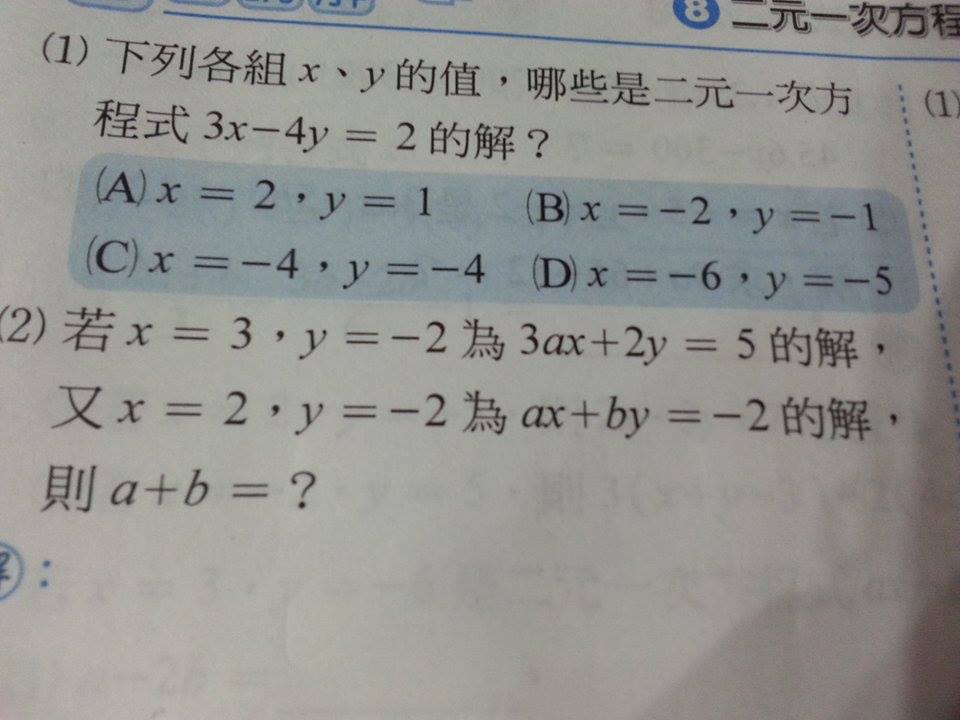 8 二元一次方程
(1) 下列各組 x、y 的值,哪些是二元一次方
程式 3x−4y = 2 的解?
(A) x = 2,y = 1 (B) x =−2,y =−1
(C) x =−4,y =−4 (D) x =−6,y =−5
(2) 若 x = 3,y =−2 為 3ax+2y = 5 的解,
又 x = 2,y =−2 為 ax+by =−2 的解,
則 a+b = ?
:
(1)